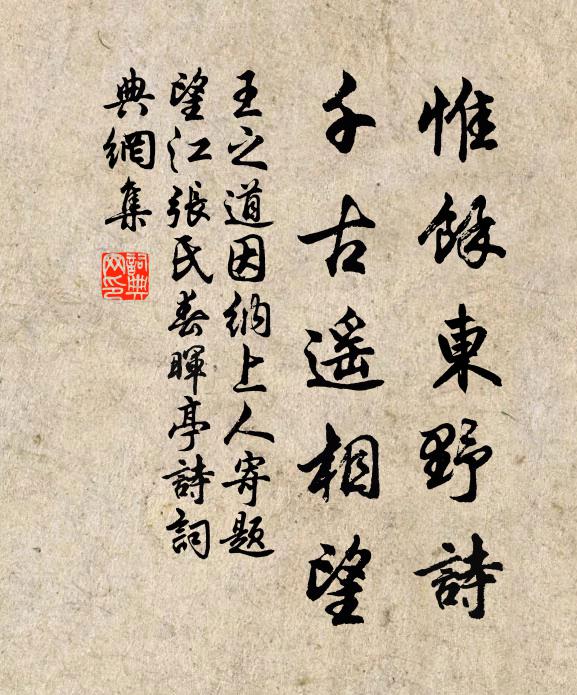 惟餘東野詩
千古遥相望
王之道因納上人寄題
望江張氏春暉亭詩詞
典網集
詞典網印